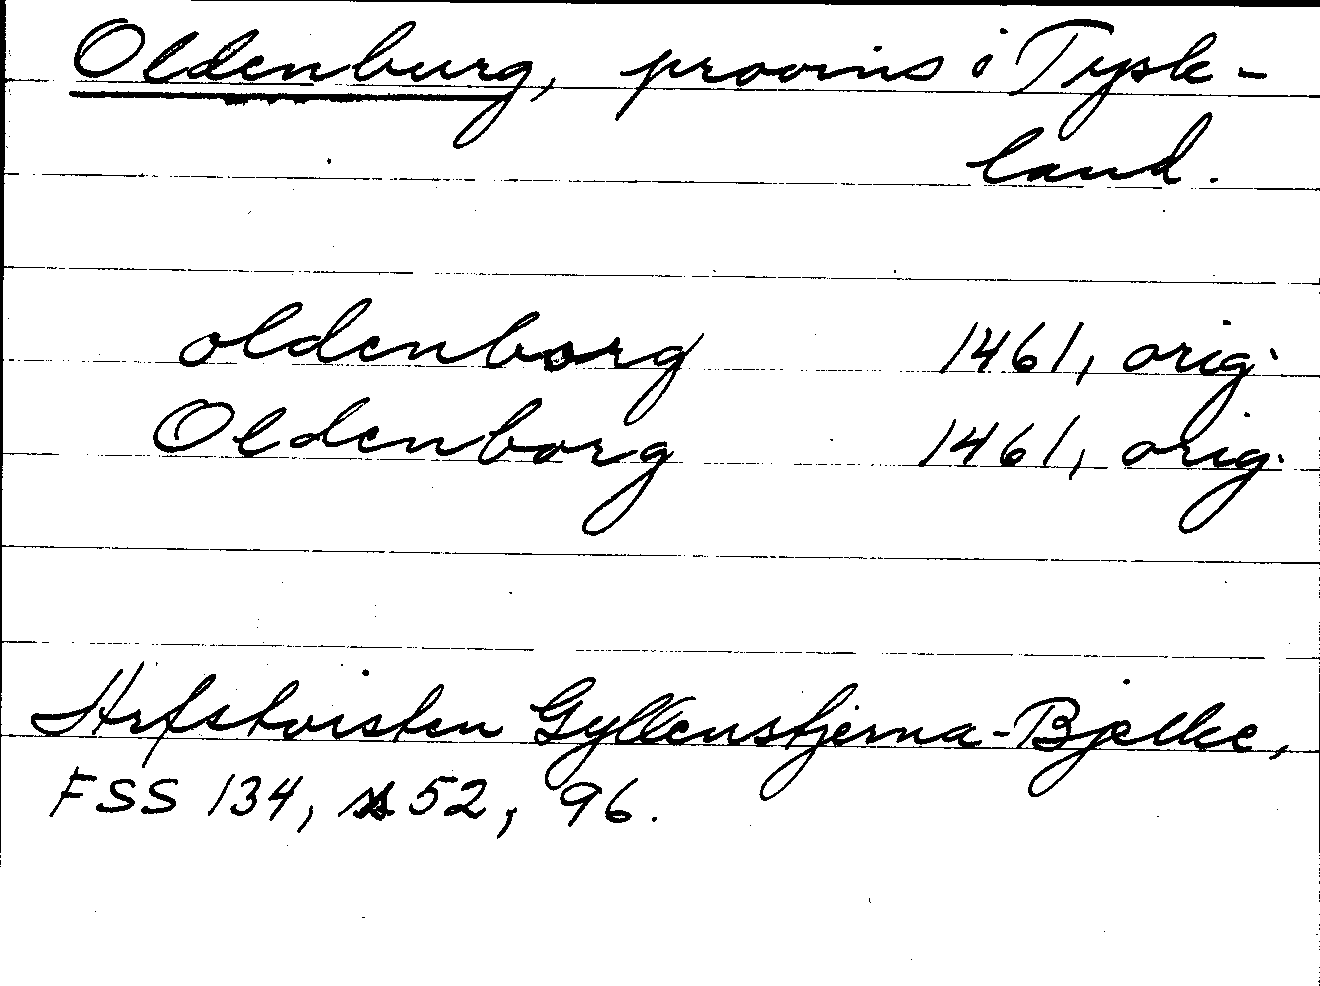 Oldenburg, provins i Tysk-
land.
oldenborg 1461, orig.
Oldenborg 1461, orig.
Arfstvisten Gyllenstjerna-Bjelke,
FSS 134, s 52, 96.